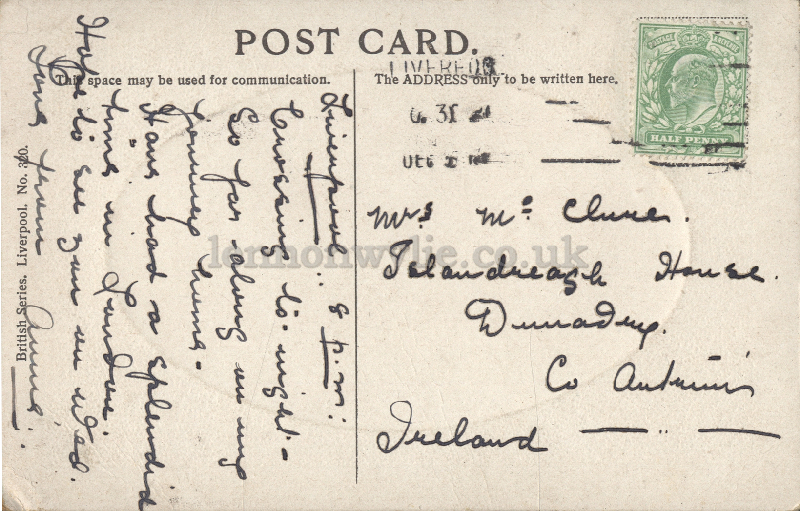 POST CARD.
This space may be used for communication.
The ADDRESS only to be written here.
LIVERPOOL
HALF PENNY
Liverpool. 8 p.m.
Crossing to-night -
So far along on my
journey home -
Have had a splendid
time in London.
Hope to see you on Wed.
Love from
Annie.
Mrs Mc Clure.
Islandreagh House.
Dunadry.
Co Antrim
Ireland
British Series. Liverpool. No. 320.
lennonwylie.co.uk